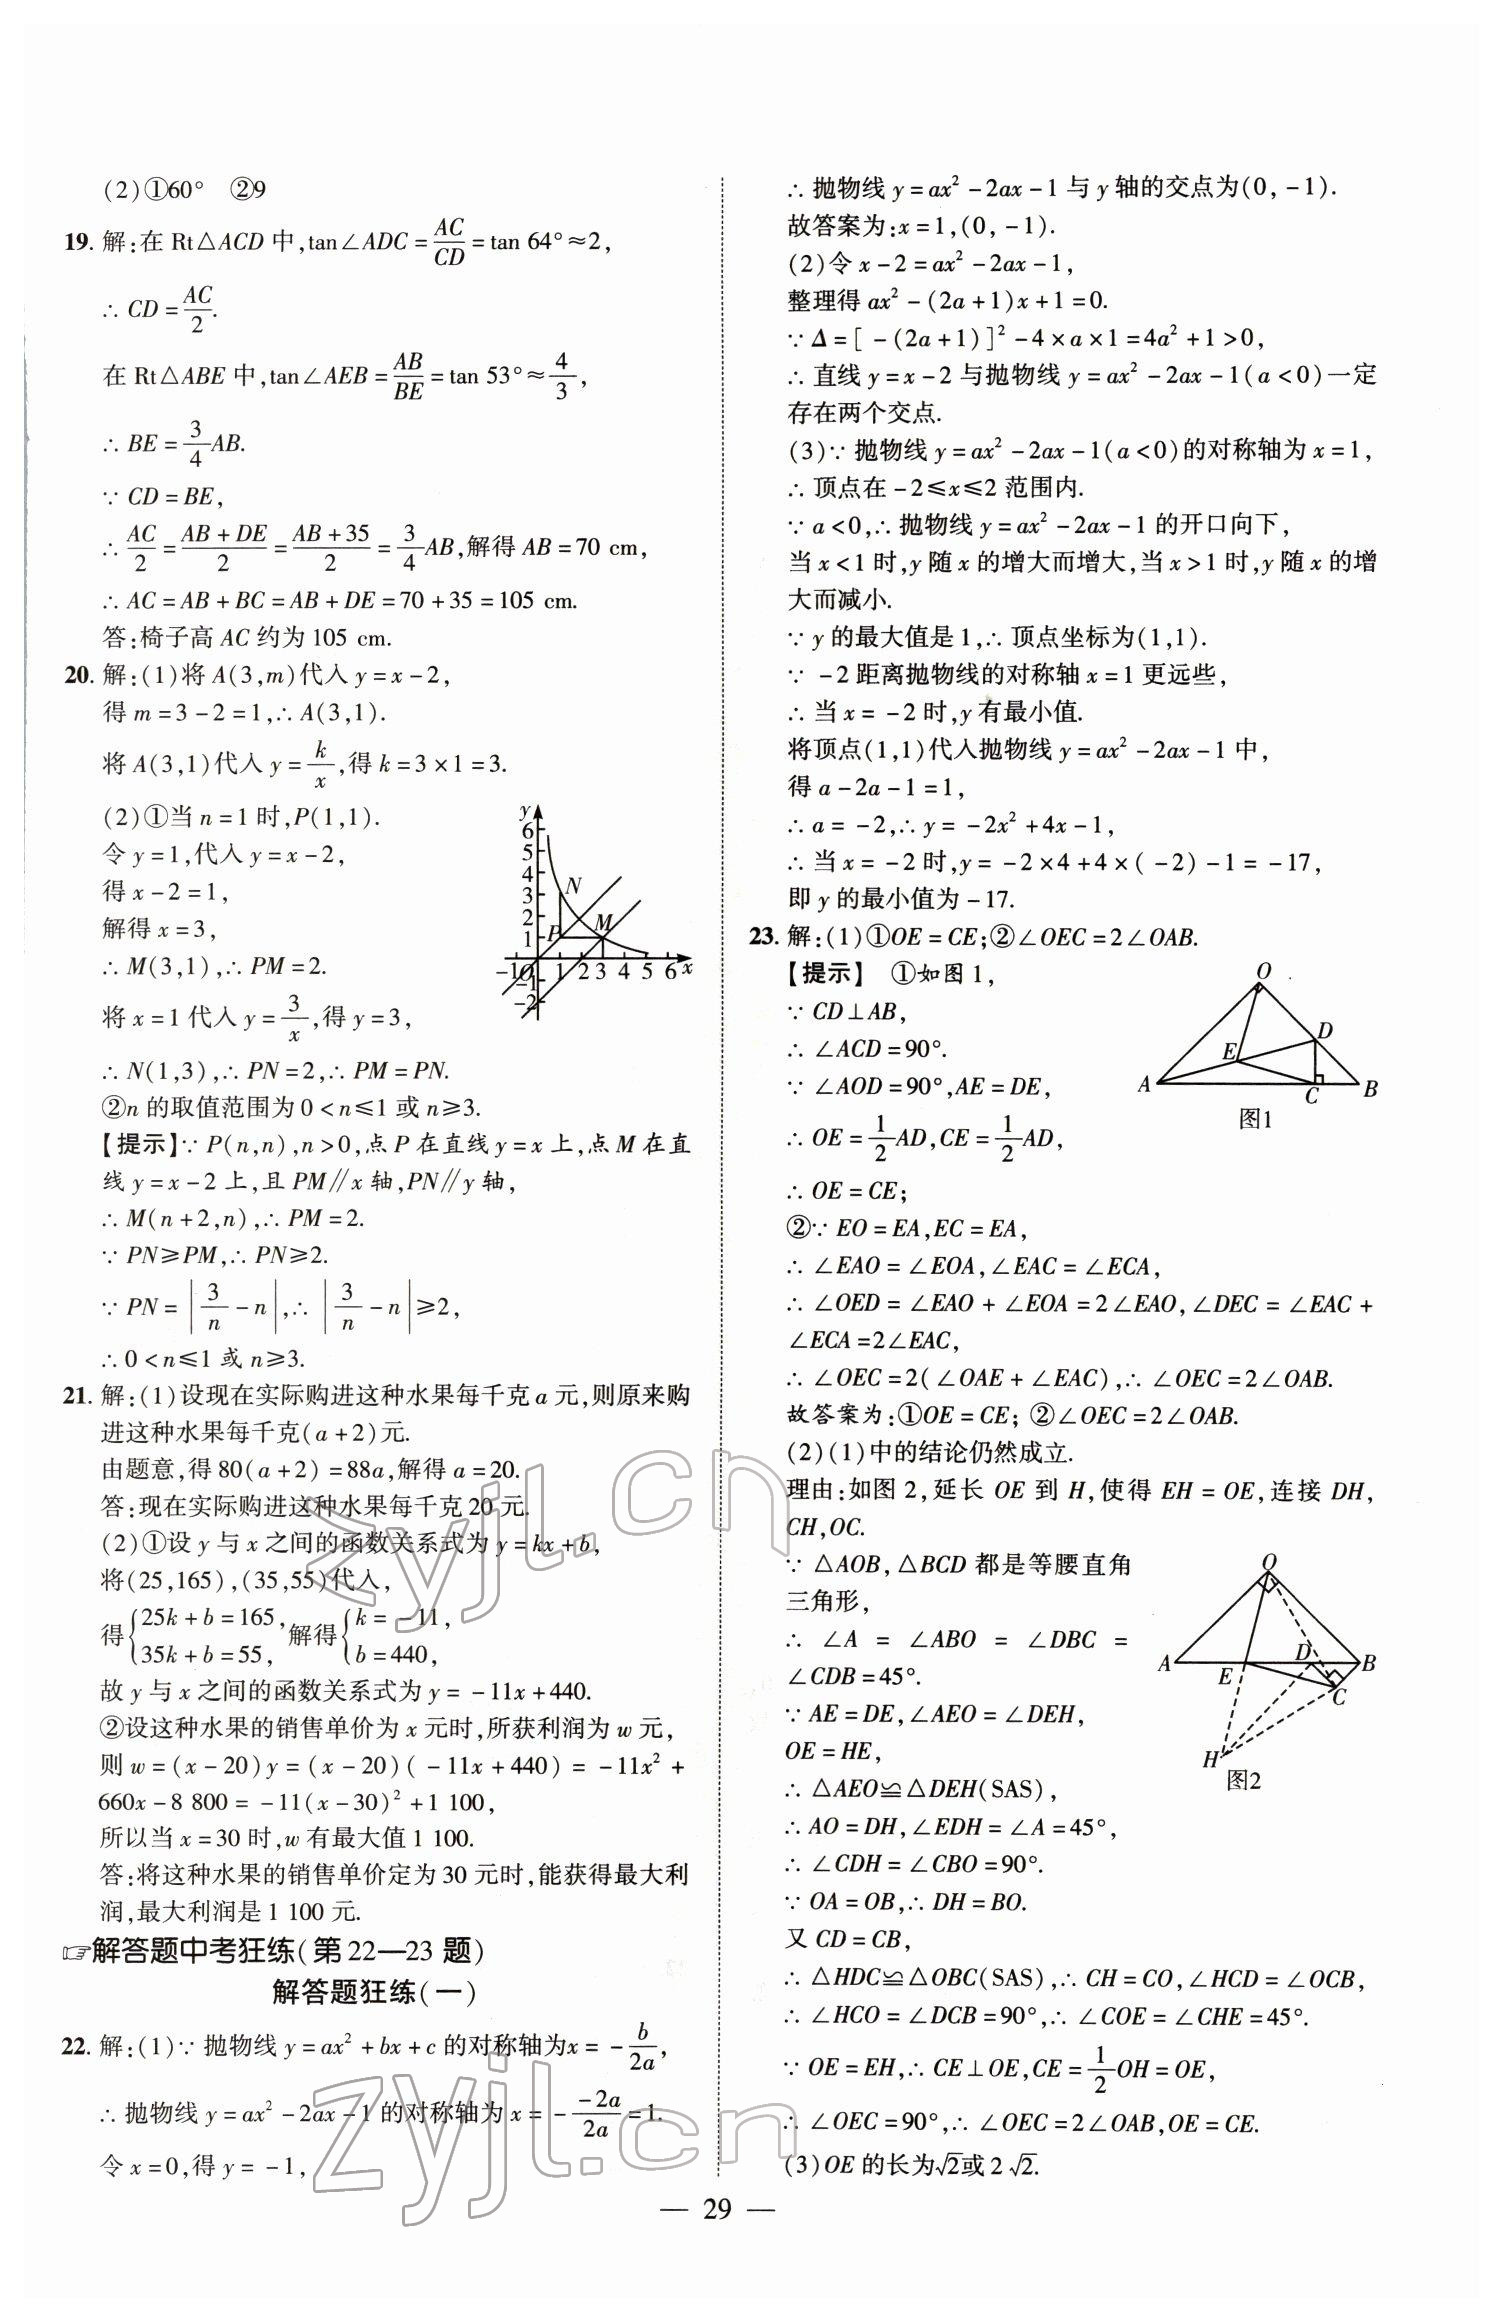 (2)①60° ②9
19. 解:在 Rt△ACD 中,tan∠ADC=AC/CD=tan 64°≈2,
∴ CD=AC/2.
在 Rt△ABE 中,tan∠AEB=AB/BE=tan 53°≈4/3,
∴ BE=3/4AB.
∵ CD=BE,
∴ AC/2=(AB+DE)/2=(AB+35)/2=3/4AB,解得 AB=70 cm,
∴ AC=AB+BC=AB+DE=70+35=105 cm.
答:椅子高 AC 约为 105 cm.
20. 解:(1)将 A(3,m)代入 y=x-2,
得 m=3-2=1,∴ A(3,1).
将 A(3,1)代入 y=k/x,得 k=3×1=3.
(2)①当 n=1 时,P(1,1).
令 y=1,代入 y=x-2,
得 x-2=1,
解得 x=3,
∴ M(3,1),∴ PM=2.
将 x=1 代入 y=3/x,得 y=3,
∴ N(1,3),∴ PN=2,∴ PM=PN.
②n 的取值范围为 0<n≤1 或 n≥3.
【提示】∵ P(n,n),n>0,点 P 在直线 y=x 上,点 M 在直
线 y=x-2 上,且 PM∥x 轴,PN∥y 轴,
∴ M(n+2,n),∴ PM=2.
∵ PN≥PM,∴ PN≥2.
∵ PN=|3/n-n|,∴ |3/n-n|≥2,
∴ 0<n≤1 或 n≥3.
y
6
5
4
3
2
1
-1 0 1 2 3 4 5 6 x
-1
-2
N
P
M
21. 解:(1)设现在实际购进这种水果每千克 a 元,则原来购
进这种水果每千克(a+2)元.
由题意,得 80(a+2)=88a,解得 a=20.
答:现在实际购进这种水果每千克 20 元.
(2)①设 y 与 x 之间的函数关系式为 y=kx+b,
将(25,165),(35,55)代入,
得{25k+b=165, 35k+b=55, 解得{k=-11, b=440,
故 y 与 x 之间的函数关系式为 y=-11x+440.
②设这种水果的销售单价为 x 元时,所获利润为 w 元,
则 w=(x-20)y=(x-20)(-11x+440)=-11x²+
660x-8 800=-11(x-30)²+1 100,
所以当 x=30 时,w 有最大值 1 100.
答:将这种水果的销售单价定为 30 元时,能获得最大利
润,最大利润是 1 100 元.
☞解答题中考狂练(第 22—23 题)
解答题狂练(一)
22. 解:(1)∵ 抛物线 y=ax²+bx+c 的对称轴为x=-b/2a,
∴ 抛物线 y=ax²-2ax-1 的对称轴为 x=-(-2a)/2a=1.
令 x=0,得 y=-1,
∴ 抛物线 y=ax²-2ax-1 与 y 轴的交点为(0,-1).
故答案为:x=1,(0,-1).
(2)令 x-2=ax²-2ax-1,
整理得 ax²-(2a+1)x+1=0.
∵ Δ=[-(2a+1)]²-4×a×1=4a²+1>0,
∴ 直线 y=x-2 与抛物线 y=ax²-2ax-1(a<0)一定
存在两个交点.
(3)∵ 抛物线 y=ax²-2ax-1(a<0)的对称轴为 x=1,
∴ 顶点在 -2≤x≤2 范围内.
∵ a<0,∴ 抛物线 y=ax²-2ax-1 的开口向下,
当 x<1 时,y 随 x 的增大而增大,当 x>1 时,y 随 x 的增
大而减小.
∵ y 的最大值是 1,∴ 顶点坐标为(1,1).
∵ -2 距离抛物线的对称轴 x=1 更远些,
∴ 当 x=-2 时,y 有最小值.
将顶点(1,1)代入抛物线 y=ax²-2ax-1 中,
得 a-2a-1=1,
∴ a=-2,∴ y=-2x²+4x-1,
∴ 当 x=-2 时,y=-2×4+4×(-2)-1=-17,
即 y 的最小值为 -17.
23. 解:(1)①OE=CE;②∠OEC=2∠OAB.
【提示】 ①如图 1,
∵ CD⊥AB,
∴ ∠ACD=90°.
∵ ∠AOD=90°,AE=DE,
∴ OE=1/2AD,CE=1/2AD,
∴ OE=CE;
O
D
E
A
C
B
图1
②∵ EO=EA,EC=EA,
∴ ∠EAO=∠EOA,∠EAC=∠ECA,
∴ ∠OED=∠EAO+∠EOA=2∠EAO,∠DEC=∠EAC+
∠ECA=2∠EAC,
∴ ∠OEC=2(∠OAE+∠EAC),∴ ∠OEC=2∠OAB.
故答案为:①OE=CE; ②∠OEC=2∠OAB.
(2)(1)中的结论仍然成立.
理由:如图 2,延长 OE 到 H,使得 EH=OE,连接 DH,
CH,OC.
∵ △AOB,△BCD 都是等腰直角
三角形,
∴ ∠A=∠ABO=∠DBC=
∠CDB=45°.
∵ AE=DE,∠AEO=∠DEH,
OE=HE,
∴ △AEO≌△DEH(SAS),
∴ AO=DH,∠EDH=∠A=45°,
∴ ∠CDH=∠CBO=90°.
∵ OA=OB,∴ DH=BO.
又 CD=CB,
∴ △HDC≌△OBC(SAS),∴ CH=CO,∠HCD=∠OCB,
∴ ∠HCO=∠DCB=90°,∴ ∠COE=∠CHE=45°.
∵ OE=EH,∴ CE⊥OE,CE=1/2OH=OE,
∴ ∠OEC=90°,∴ ∠OEC=2∠OAB,OE=CE.
(3)OE 的长为√2或 2√2.
O
A
E
D
B
C
H
图2
zyjl.cn
zyjl.cn
— 29 —